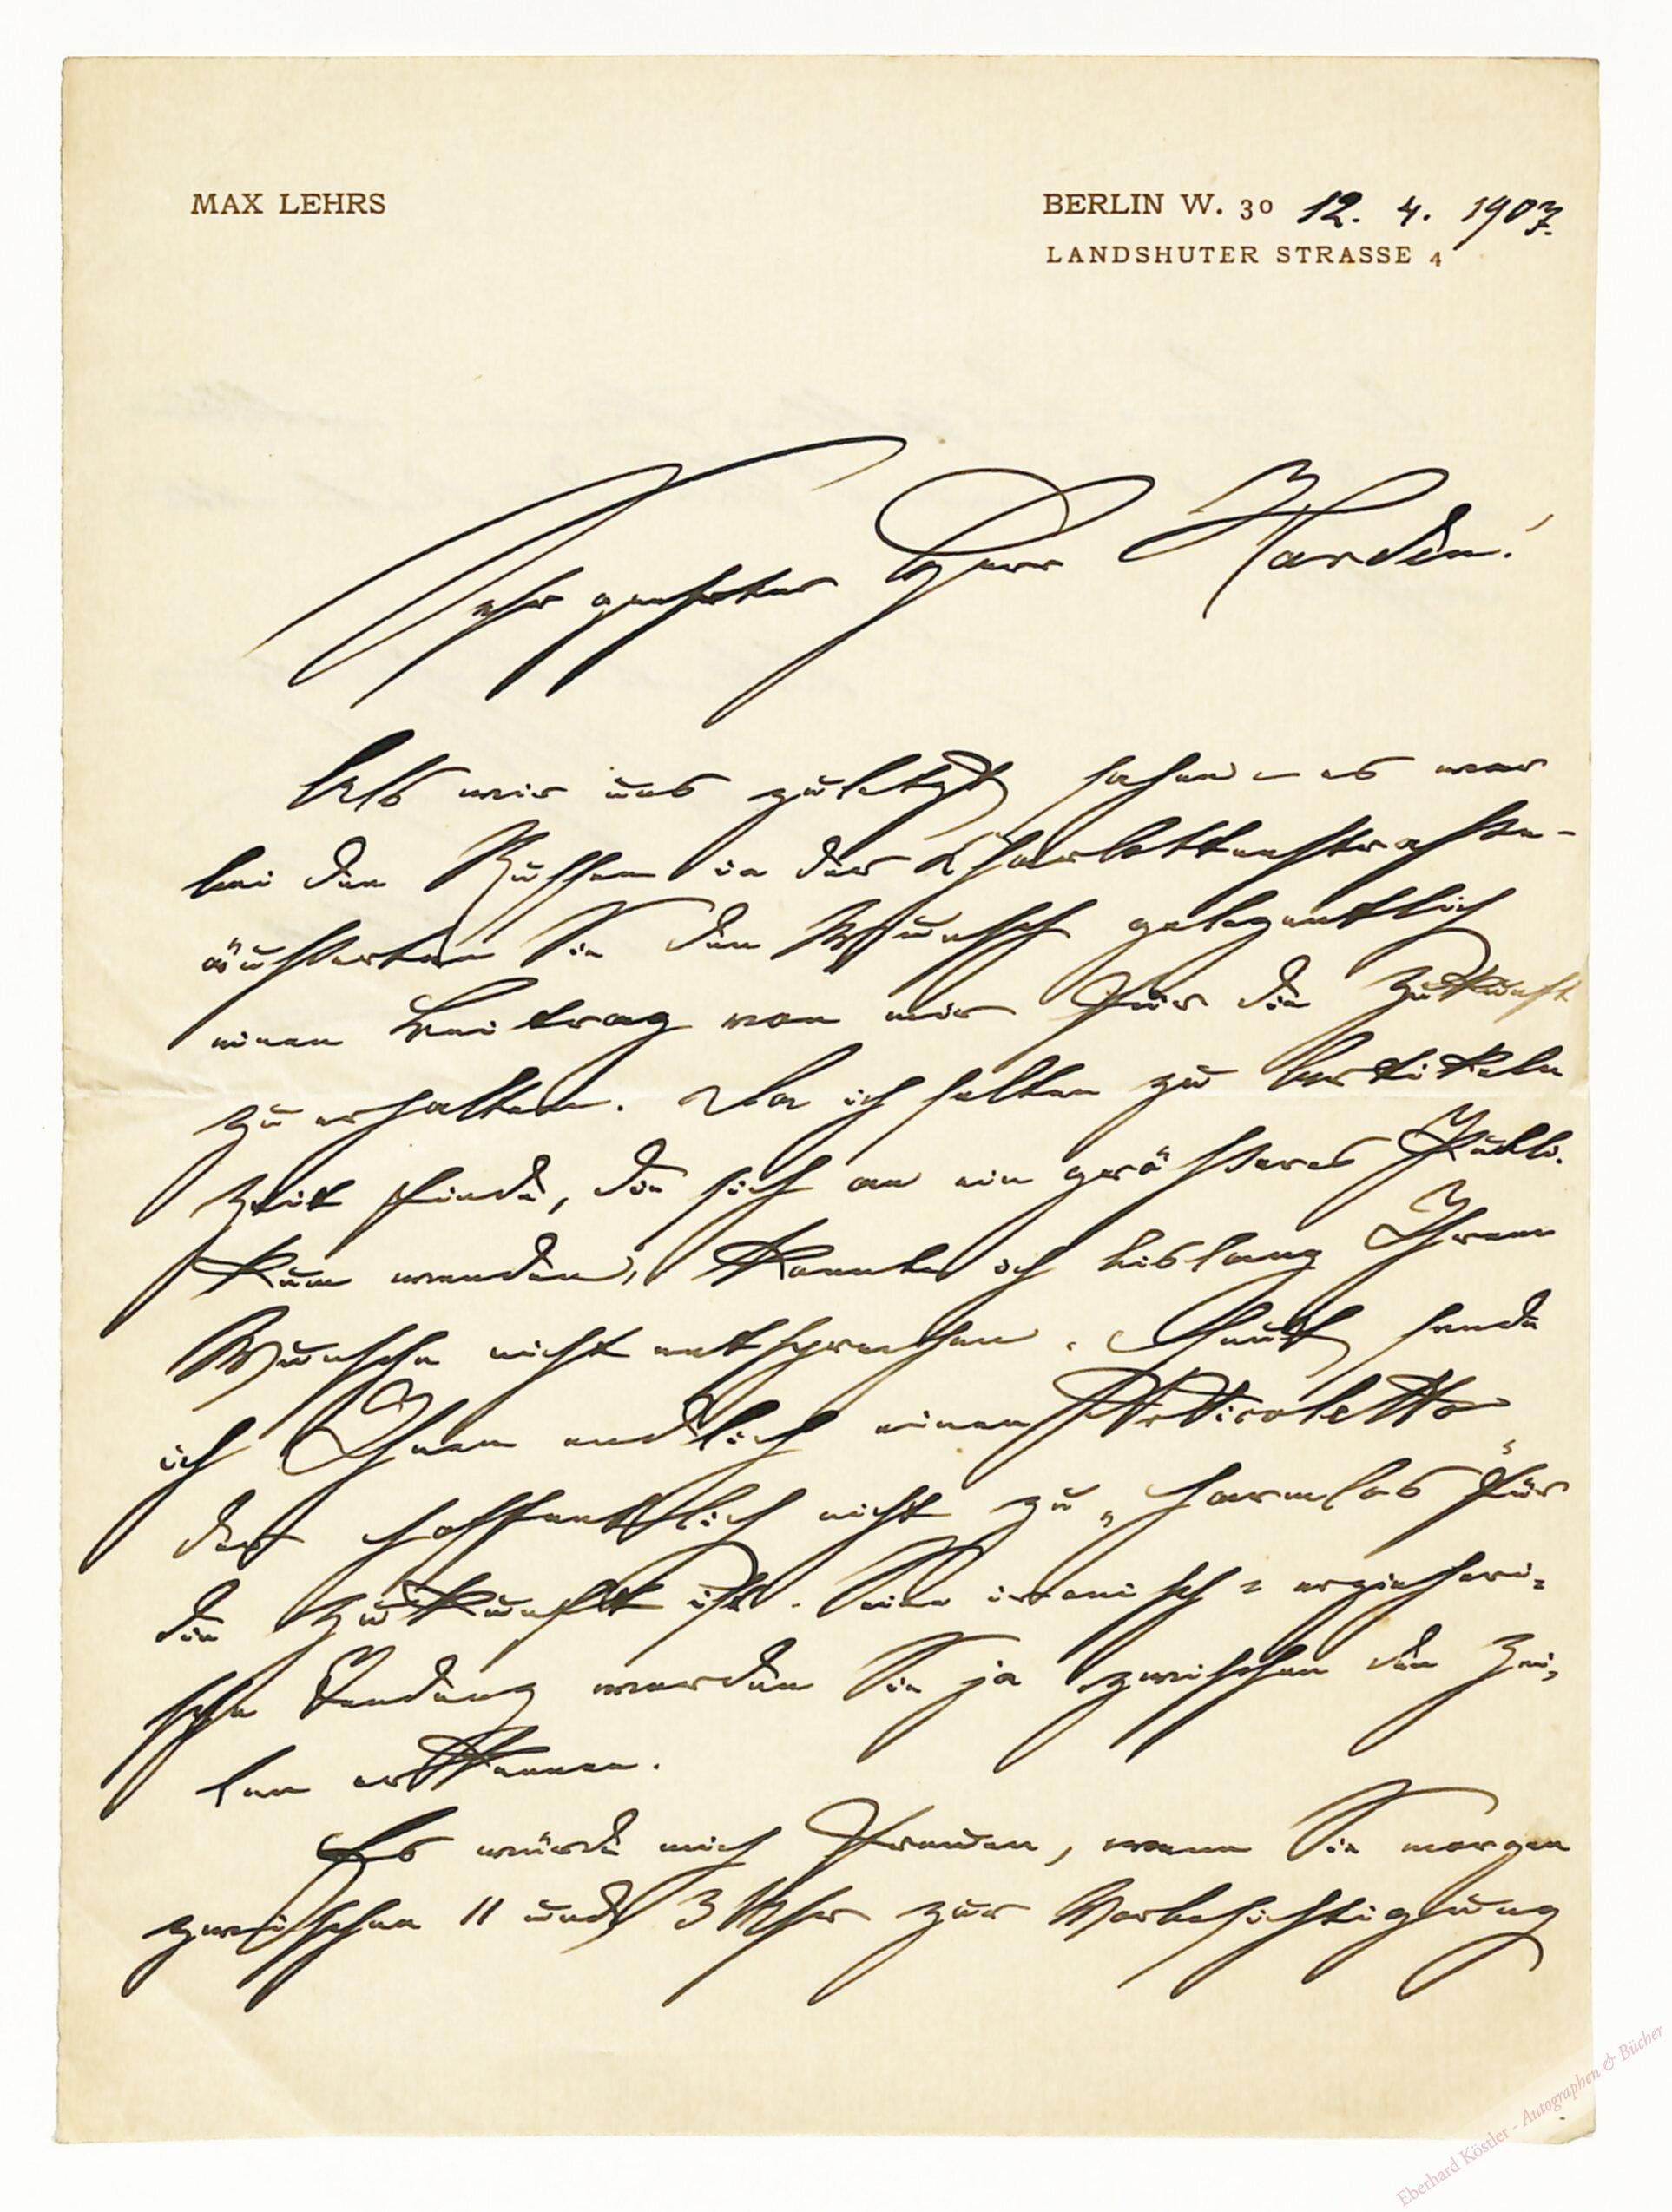 MAX LEHRS
BERLIN W. 30 12. 4. 1907.
LANDSHUTER STRASSE 4
Sehr geehrter Herr Harden!
Als wir uns zuletzt sahen – es war
bei den Russen in der Charlottenstrasse –
äusserten Sie den Wunsch gelegentlich
einen Beitrag von mir für die Zukunft
zu erhalten. Da ich selten zu Artikeln
Zeit finde, die sich an ein grösseres Publi-
kum wenden, konnte ich bislang Ihrem
Wunsche nicht entsprechen. Heut sende
ich Ihnen endlich einen Articoletto
der hoffentlich nicht zu „harmlos“ für
die Zukunft ist. Seine ironisch-erzieheri-
sche Tendenz werden Sie ja zwischen den Zei-
len erkennen.
Es würde mich freuen, wenn Sie morgen
zwischen 11 und 3 Uhr zur Vorbesichtigung
Eberhard Köstler - Autographen & Bücher